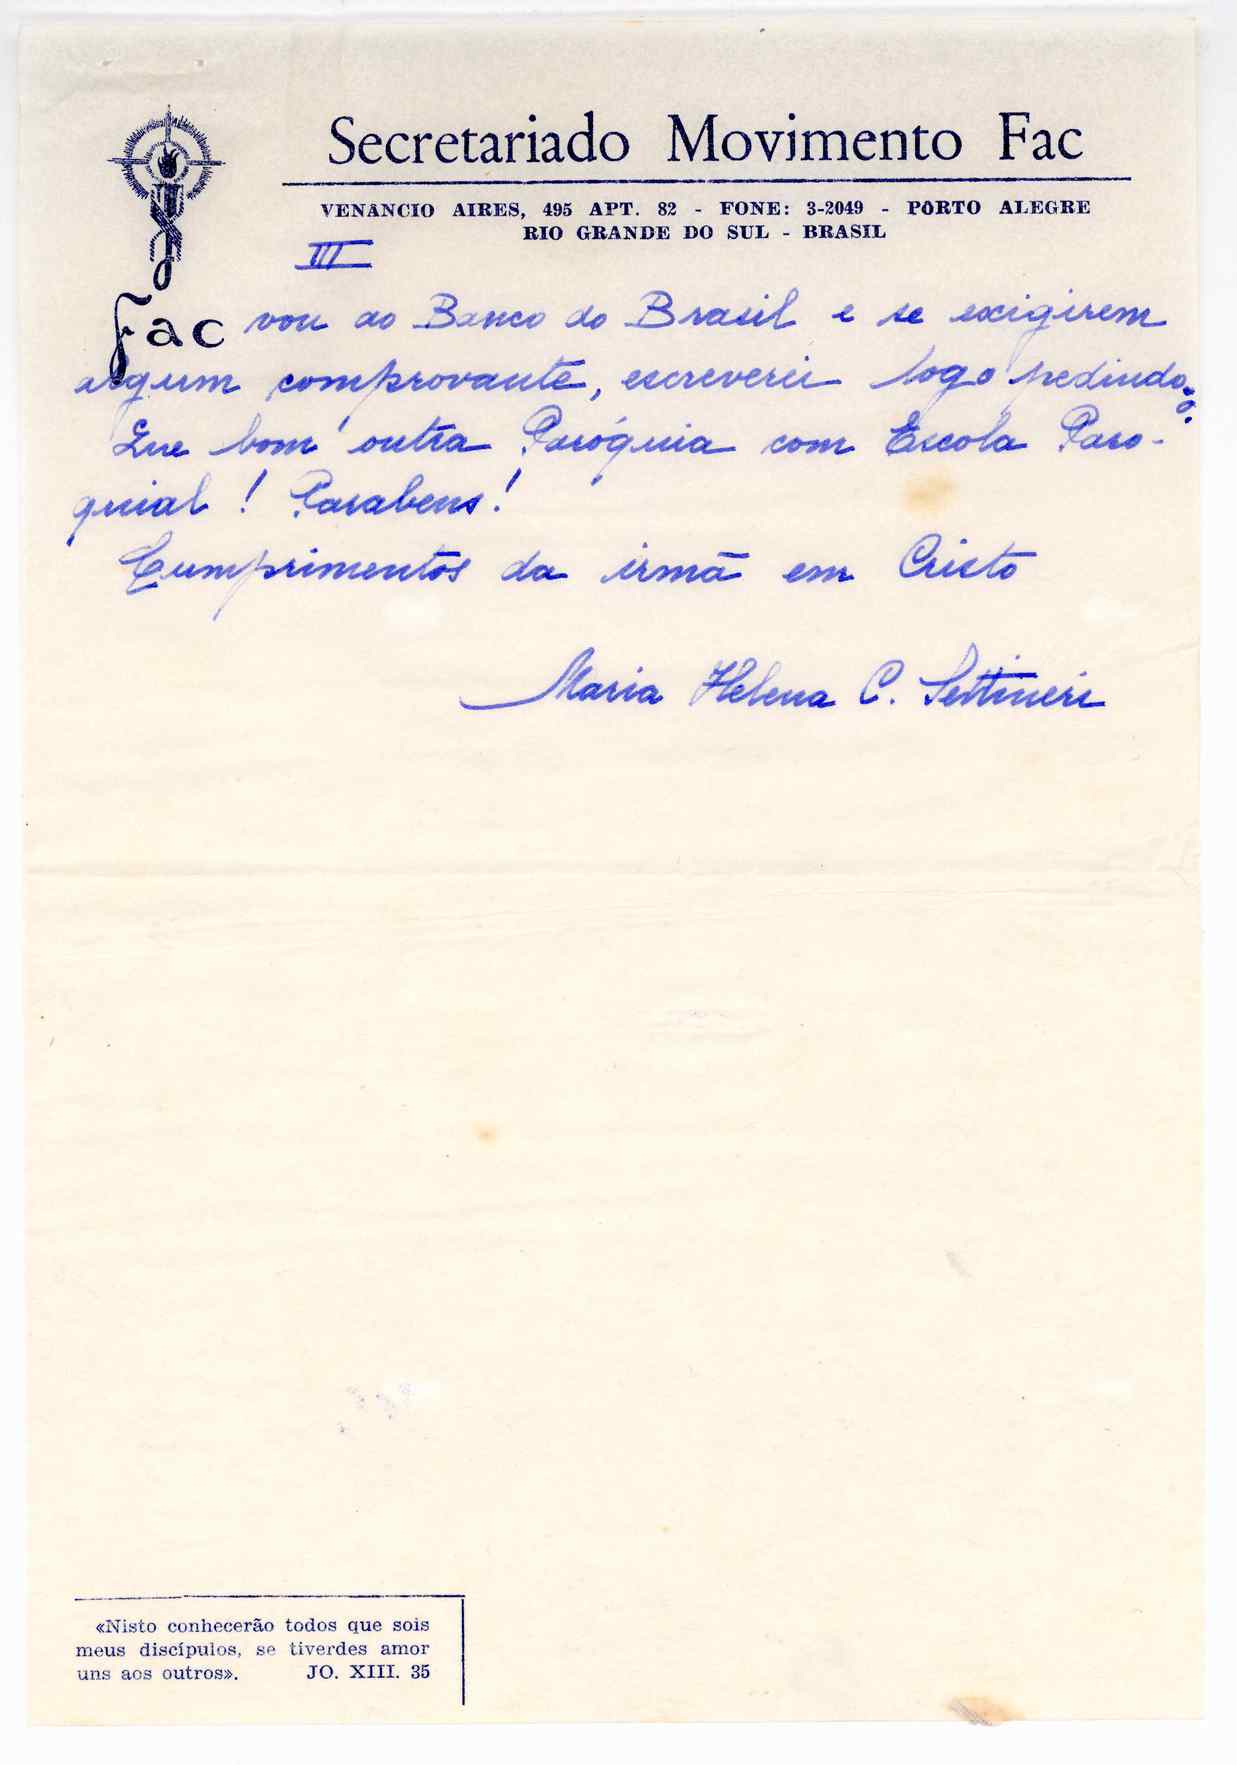 Secretariado Movimento Fac
VENÂNCIO AIRES, 495 APT. 82 - FONE: 3-2049 - PÔRTO ALEGRE
RIO GRANDE DO SUL - BRASIL
III
Fac
vou ao Banco do Brasil e se exigirem
algum comprovante, escreverei logo pedindo-o.
Que bom outra Paróquia com Escola Paro-
quial! Parabens!
Cumprimentos da irmã em Cristo
Maria Helena C. Settineri
«Nisto conhecerão todos que sois
meus discípulos, se tiverdes amor
uns aos outros». JO. XIII. 35